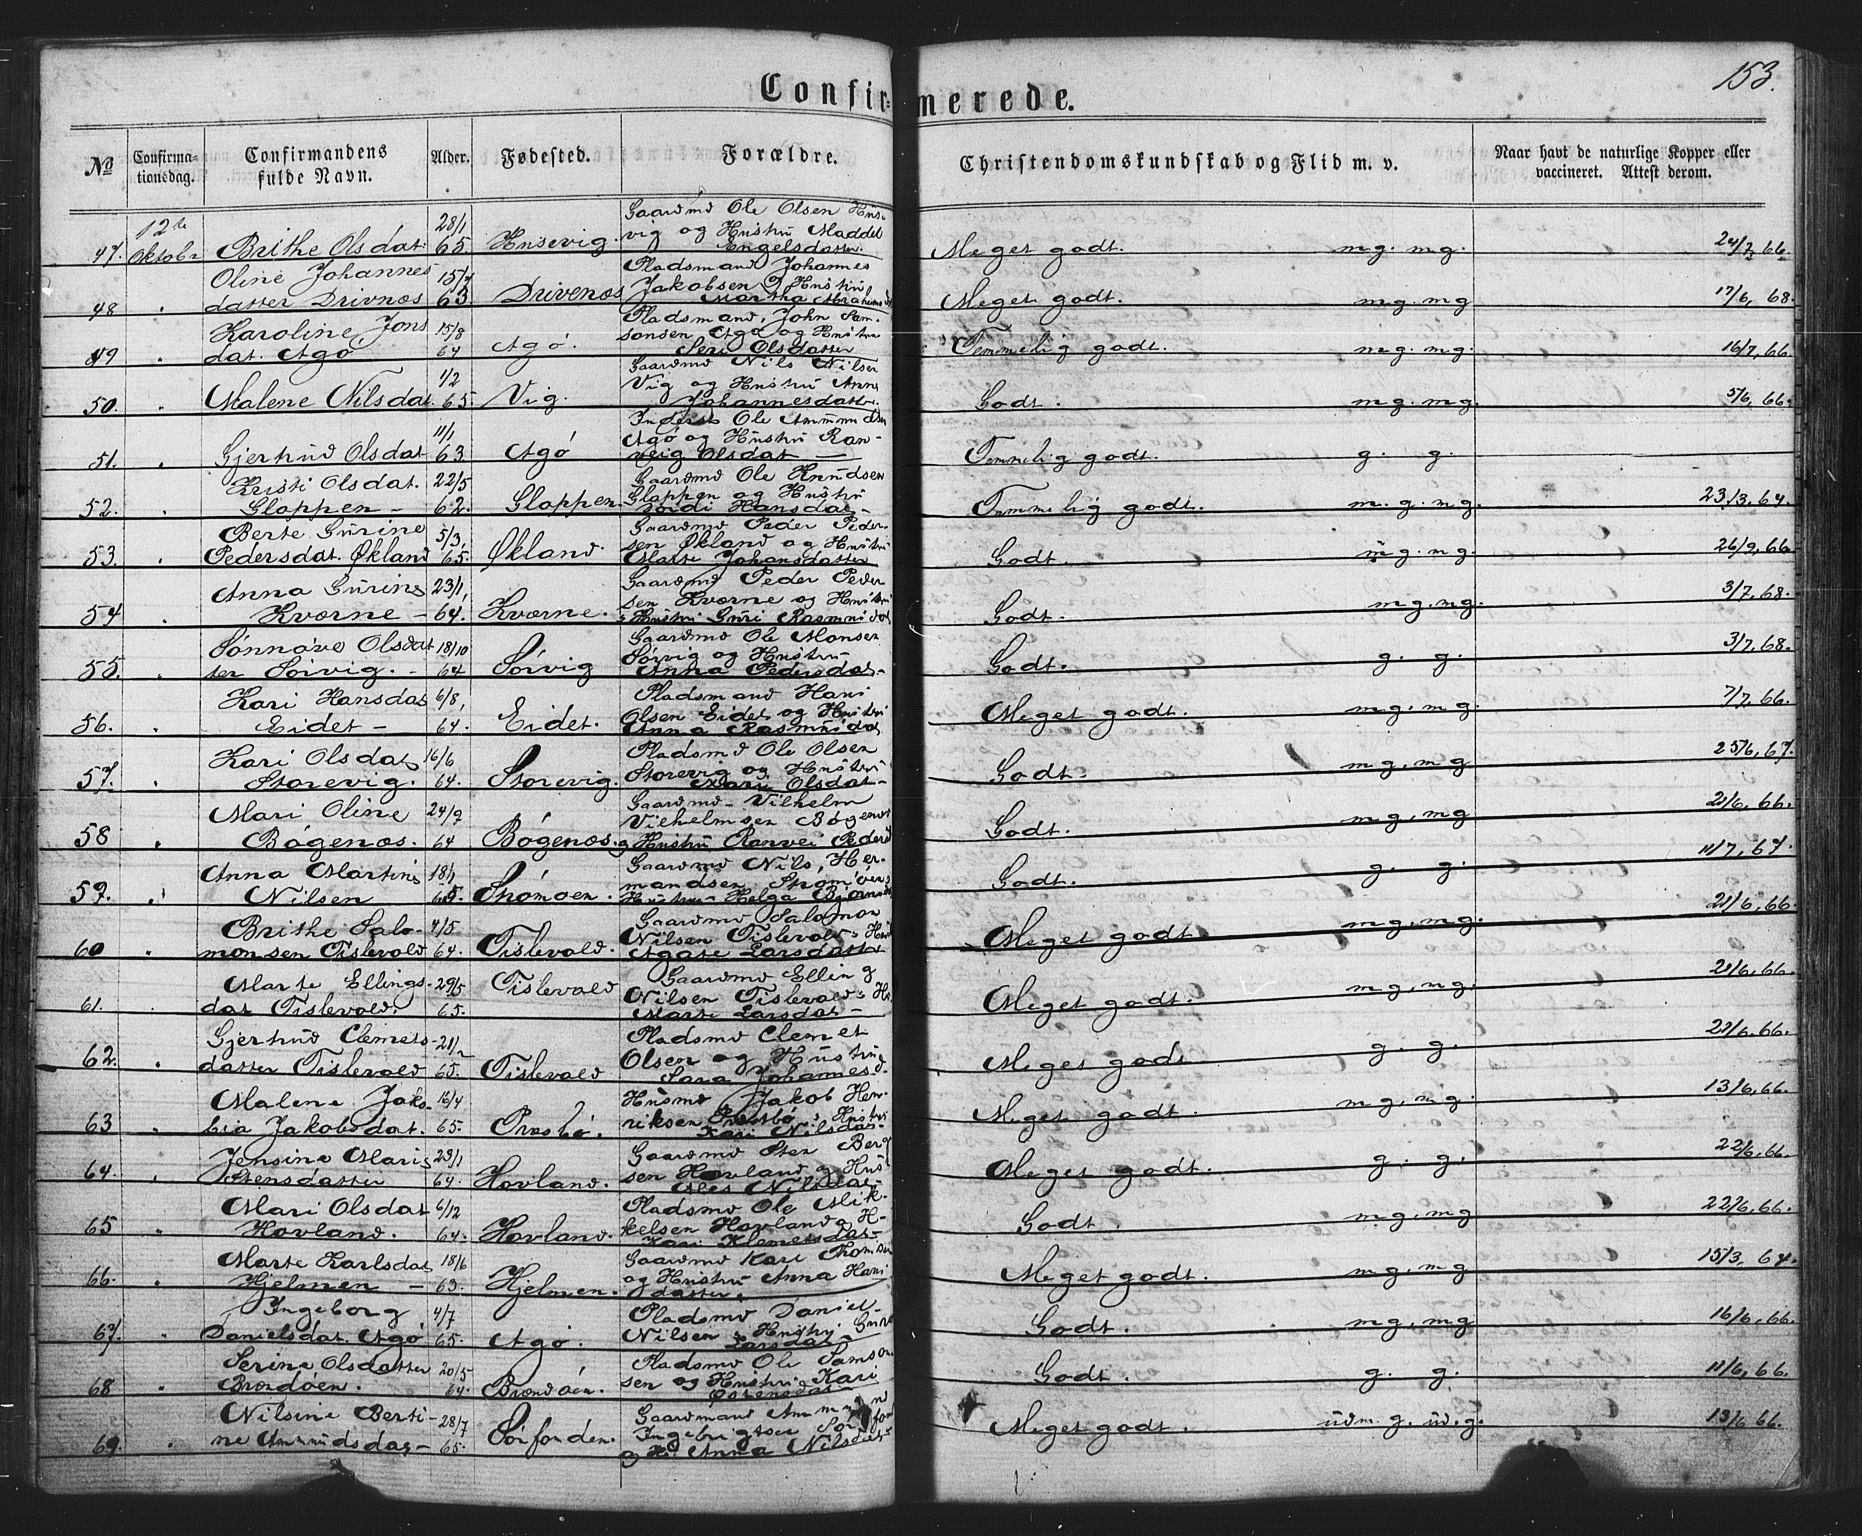 153.
Confirmerede.
No
Confirmationsdag.
Confirmandens fulde Navn.
Alder.
Fødested.
Forældre.
Christendomskundskab og Flid m. v.
Naar havt de naturlige Kopper eller vaccineret. Attest derom.
Gaardmd Ole Olsen Hus-
12te 28/1 vig og Hustru Maddel
47. Oktobr Brithe Olsdat. 65. Husevig. Engelsdatter. Meget godt. mg. mg. 24/7, 66
Oline Johannes- 15/7 Pladsmand Johannes
48 datter Drivnæs 63 Drivenæs Jakobsen og Hustru Martha Abrahamsd Meget godt. mg. mg 17/6, 68.
Karoline Jons 15/8 Pladsmand, John Sam-
49 dat. Agø 64 Agø. sonsen Agø og Hustru Seri Olsdatter Temmelig godt. mg. mg. 16/7, 66.
1/2 Gaardmd Nils Nilsen
50. Malene Nilsdat. 65. Vig. Vig og Hustru Anna Johannesdatter. Godt. mg. mg. 5/6, 66.
11/1 Inderst Ole Ammundsen
51. Gjertrud Olsdat 63 Agø Agø og Hustru Ranveig Olsdat Temmelig godt. g. g.
Kristi Olsdat. 22/5 Gaardmd Ole Knudsen
52. Gloppen - 62. Gloppen. Gloppen og Hustru Hansdat - Temmelig godt. m. g. mg. 23/3, 64.
Berte Gurine 5/3, Gaardmd Peder Peder-
53. Pedersdat. Økland 65. Økland. sen Økland og Hustru Marte Johansdatter Godt. mg. mg. 26/9, 66
Anna Gurine 23/1, Gaardmd Peder Peder
54 Kværne - 64. Kværne. sen Kværne og Hustru Hustru Guri Rasmusdat Godt. mg. mg. 3/7, 68.
Sønnøve Olsdat 18/10 Gaardmd Ole Monsen
55. ter Sørvig. - 64 Sørvig Sørvig og Hustru Anna Pedersdat - Godt. g. g. 3/7, 68.
Kari Hansdat 6/8, Pladsmand Hans
56. Eidet - 64. Eidet. Olsen Eidet og Hustru Anna Rasmusdat Meget godt. mg. mg. 7/7, 66.
Kari Olsdat 16/6 Pladsmd Ole Olsen
57. Storevig. 64. Storevig. Storevig og Hustru Mari Olsdat - Godt. mg. mg 25/6, 67.
Mari Oline 24/9 Gaardmd - Vilhelm
58 Bøgenæs. 64 Bøgenæs. Vilhelmsen Bøgenæs og Hustru Ranvei Pedersd Godt. mg. mg 21/6, 66.
Anna Martine 18/1 Gaardmd Nils, Her-
59. Nilsen 65. mandsen Hustru Helga Godt. g. g. 11/7, 67.
Brithe Salo- 4/5 Gaardmd Salomon
60 monsen Tislevold 64. Tislevold. Nilsen Tislevold Agate Larsdatter Meget godt. mg, mg. 21/6, 66.
Marte Ellings- 29/5 Tislevold Gaardmd Elling
61. dat Tislevold. 65. Nilsen Tislevold Marte Larsdat - Meget godt. mg, mg. 21/6, 66.
Gjertrud Clemets- 21/2 Pladsmd Clemet
62. datter Tislevold 65. Tislevold Olsen og Hustru Sara Johannesd. Meget godt. g. g. 21/6, 66.
Malene Jako- 16/4 Husmd Jakob Hen-
63 bia Jakobsdat. 65. Præsbø. riksen Præstbø Hustru Kari Nilsdat- Meget godt. mg, mg. 13/6, 66.
Jensine Marie 23/1 Gaardmd Sten
64. Stensdatter 64. Hovland. sen Hovland og Hust Nilsdat - Meget godt. g. g. 22/6, 66.
Mari Olsdat 6/12 Pladsmd Ole Mik-
65 Hovland. 64. Hovland. kelsen Hovland og H- Kari Klemetsdat - Godt. mg, mg 22/6, 66.
Marte Karlsdat 18/6 Gaardmd Karl Thomsen
66. Hjelmen - 63. Hjelmen. og Hustru Anna Hans datter. Meget godt. mg. mg 15/3, 64.
Ingeborg 4/7 Pladsmd Daniel
67. Danielsdat. Agø 65. Agø. Nilsen Hustru Guri Larsdat - Godt. mg, mg 16/6, 66.
Serine Olsdatter 20/5 Pladsmd Ole Samson
68 Brændøen. 64. Brændøen. sen og Hustru Kari Østensdat - Godt. g. g. 11/6, 66.
Nilsine Berti- 28/7 Gaardmand Ammun
69. ne Amundsdat- 65. Sørfonden. Ingebrigtsen Sørfon og H. Anna Nilsdat- Meget godt. udm. g. ud. g. 13/6 66.